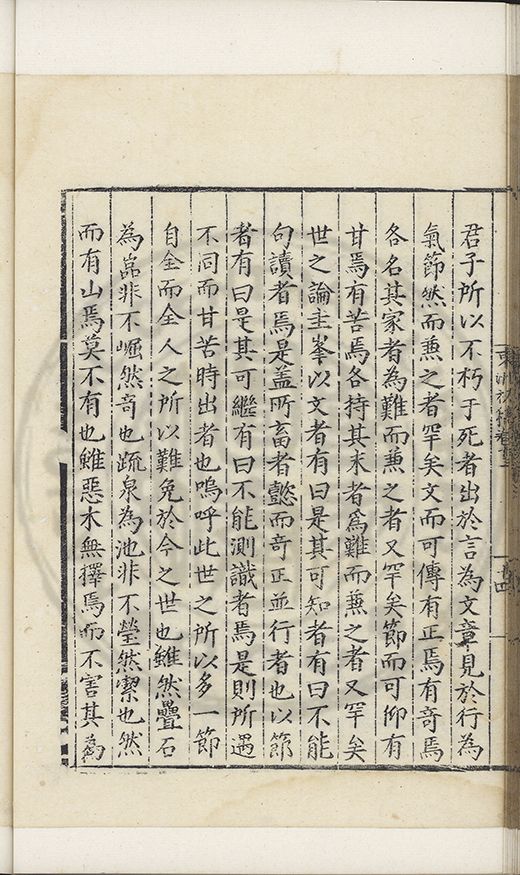 君子所以不朽于死者出於言為文章見於行為
氣節然而兼之者罕矣文而可傳有正焉有奇焉
各名其家者為難而兼之者又罕矣節而可仰有
甘焉有苦焉各持其末者爲難而兼之者又罕矣
世之論圭峯以文者有曰是其可知者有曰不能
句讀者焉是盖所畜者懿而奇正並行者也以節
者有曰是其可繼有曰不能測識者焉是則所遇
不同而甘苦時出者也嗚呼此世之所以多一節
自全而全人之所以難免於今之世也雖然疊石
為嵓非不崛然奇也疏泉為池非不瑩然潔也然
而有山焉莫不有也雖惡木無擇焉而不害其為